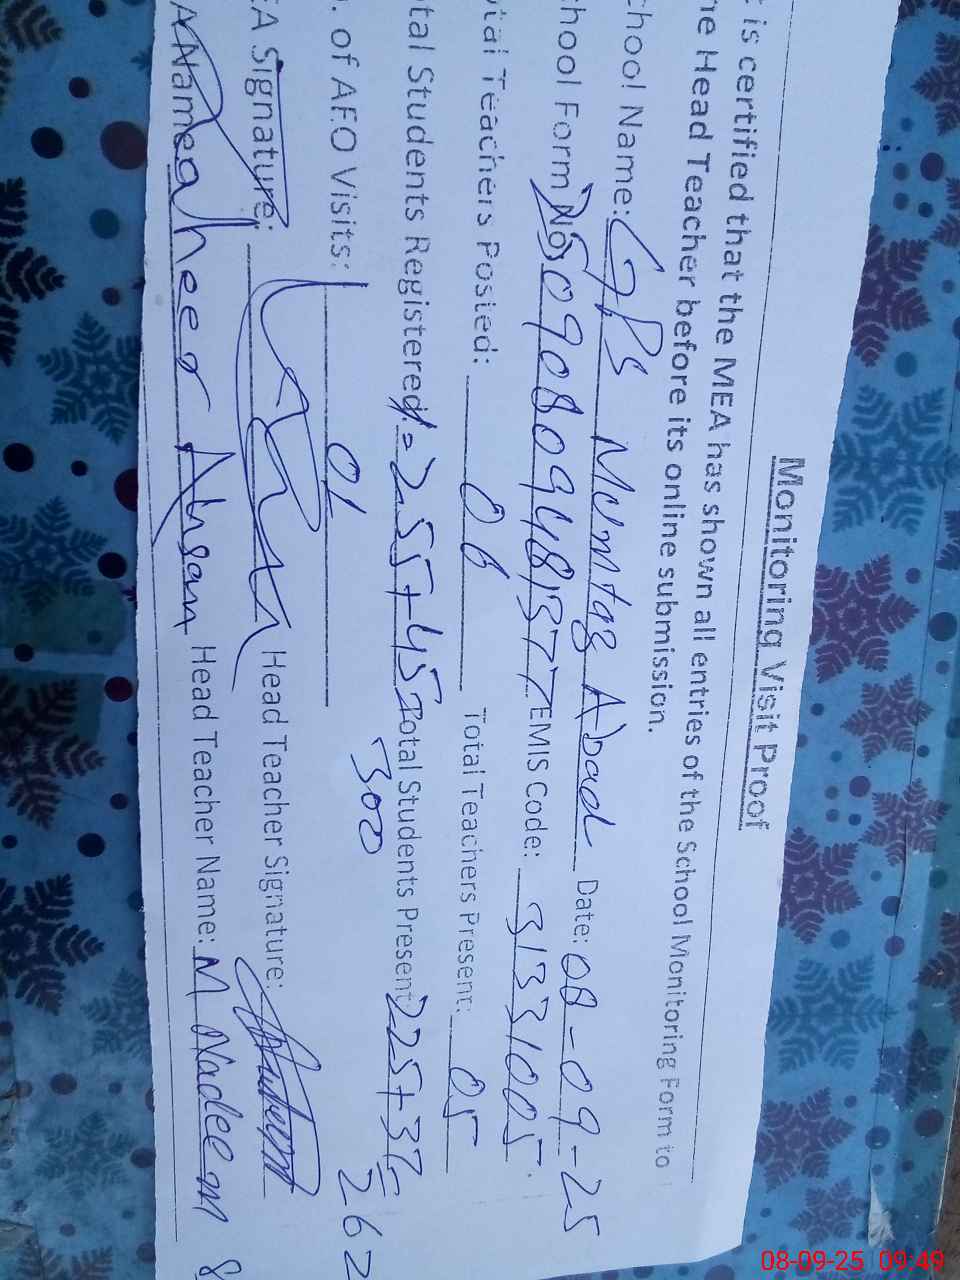 Monitoring Visit Proof
t is certified that the MEA has shown all entries of the School Monitoring Form to
he Head Teacher before its online submission.
chool Name: GPS Mumtaz Abad Date: 08-09-25
chool Form No: EMIS Code: 31331005
otal Teachers Posted: 06 Total Teachers Present: 05
otal Students Registered: = 255+45= Total Students Present: 225+37=
300 262
. of AEO Visits: 01
EA Signature: Head Teacher Signature:
A Name Ahsan Head Teacher Name: M Nadeem
08-09-25 09:49